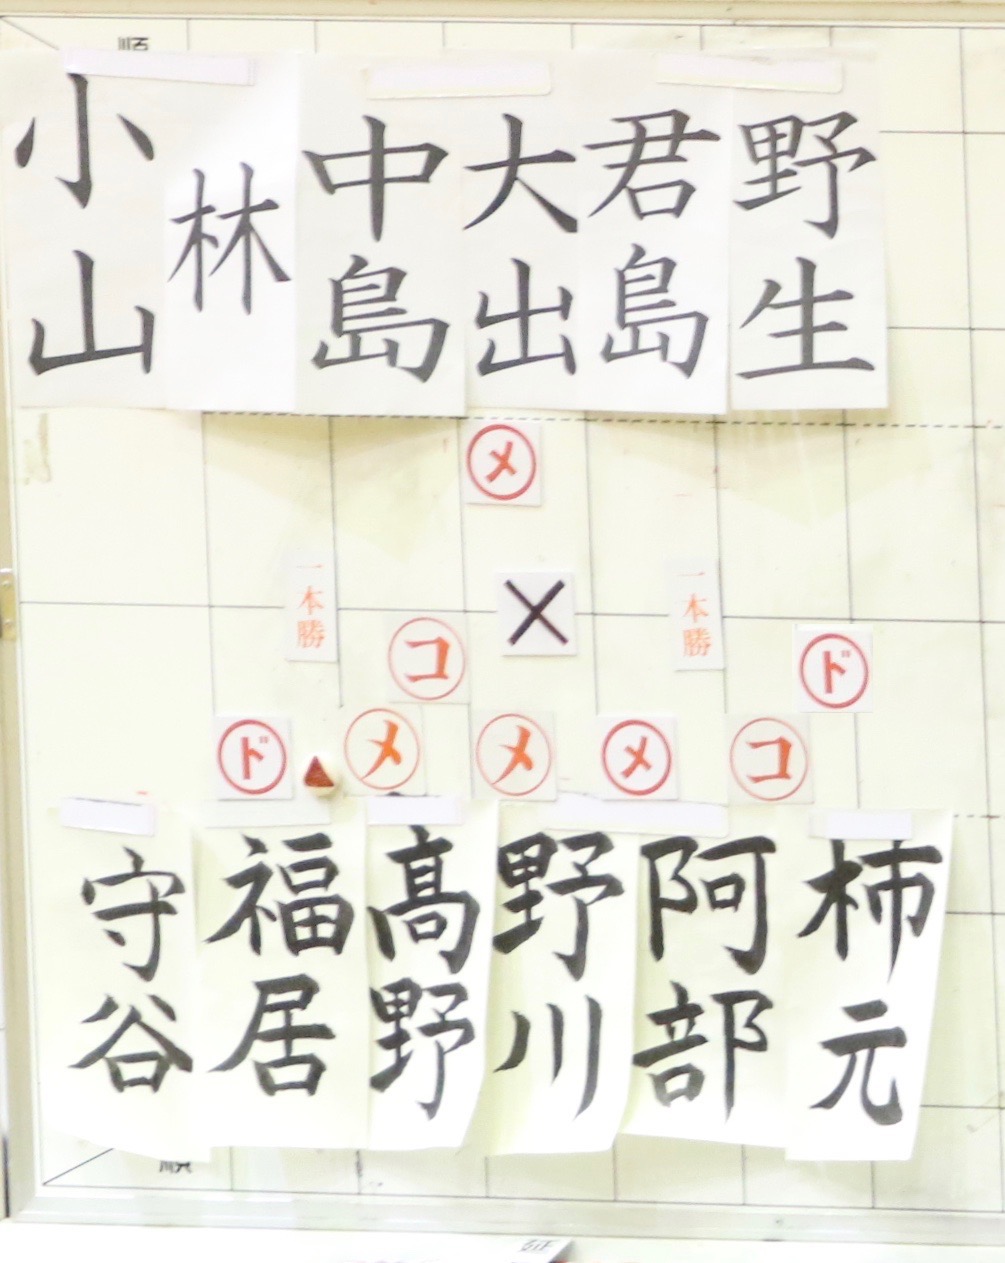 順
小山
林
中島
大出
君島
野生
メ
一本勝
×
一本勝
コ
ド
ド
メ
メ
メ
コ
守谷
福居
髙野
野川
阿部
柿元
順